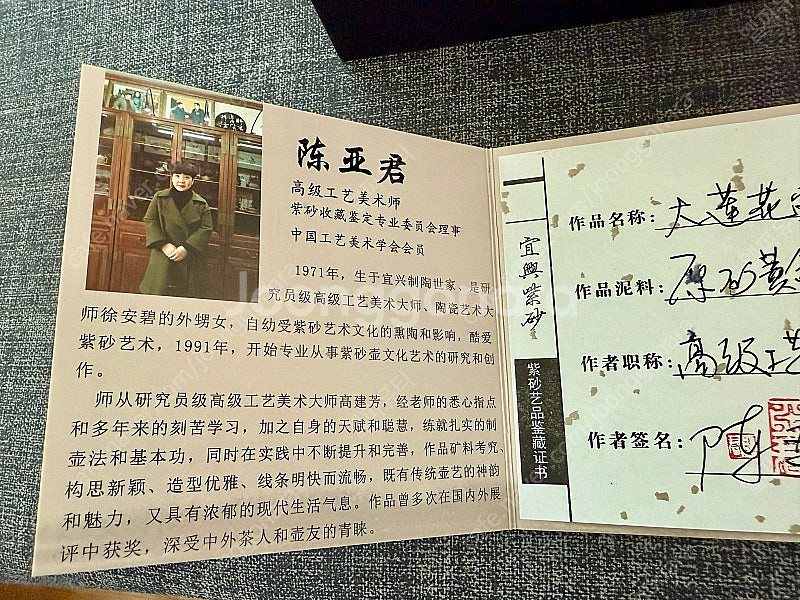 陈亚君
高级工艺美术师
紫砂收藏鉴定专业委员会理事
中国工艺美术学会会员
1971年，生于宜兴制陶世家、是研
究员级高级工艺美术大师、陶瓷艺术大
师徐安碧的外甥女，自幼受紫砂艺术文化的熏陶和影响，酷爱
紫砂艺术，1991年，开始专业从事紫砂壶文化艺术的研究和创
作。
师从研究员级高级工艺美术大师高建芳，经老师的悉心指点
和多年来的刻苦学习，加之自身的天赋和聪慧，练就扎实的制
壶法和基本功，同时在实践中不断提升和完善，作品矿料考究、
构思新颖、造型优雅、线条明快而流畅，既有传统壶艺的神韵
和魅力，又具有浓郁的现代生活气息。作品曾多次在国内外展
评中获奖，深受中外茶人和壶友的青睐。
宜興紫砂
紫砂艺品鉴藏证书
作品名称：大莲花
作品泥料：原矿黄
作者职称：高级工艺
作者签名：陈